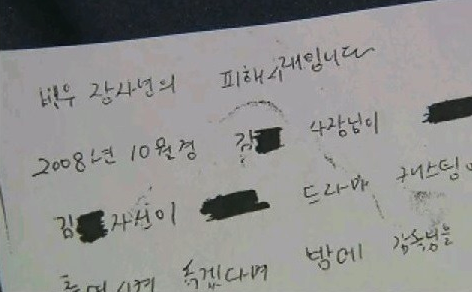 배우 장자연의 피해사례입니다
2008년 10월경 김 사장님이
김 자신이 드라마 캐스팅
출연시켜 주겠다며 밤에 감독님을